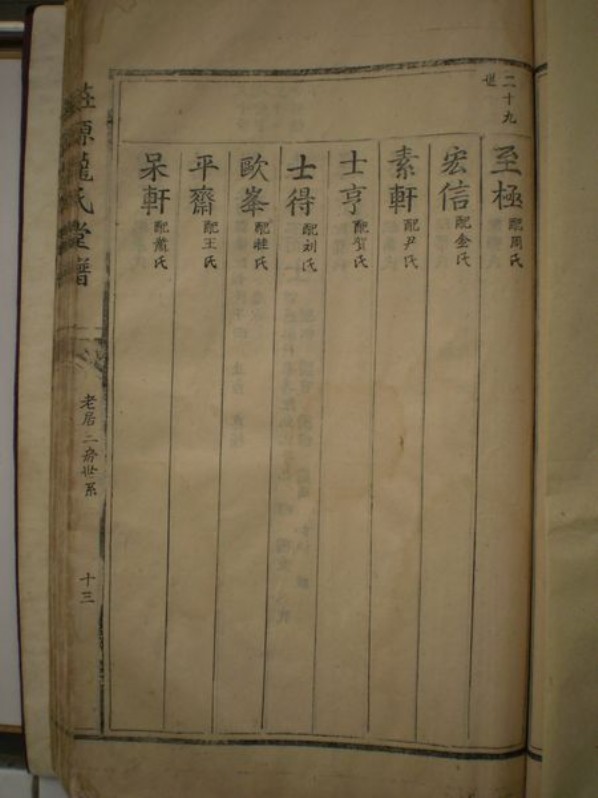 二十九世
至極 配周氏
宏信 配金氏
素軒 配尹氏
士亨 配賀氏
士得 配刘氏
歐峯 配桂氏
平齋 配王氏
呆軒 配蕭氏
源龍氏堂譜
老居二房世系
十三